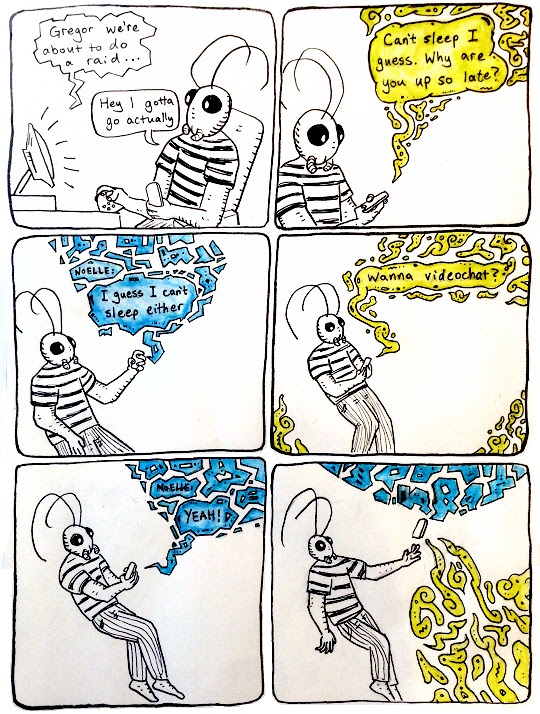 Gregor we're
about to do
a raid...
Hey I gotta
go actually
Can't sleep I
guess. Why are
you up so late?
NOELLE:
I guess I can't
sleep either
Wanna videochat?
NOELLE:
YEAH!